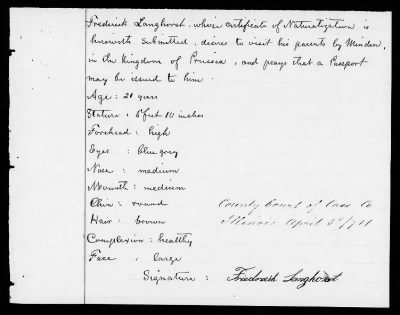 Frederick Langhorst, whose certificate of Naturalization is
herewith submitted, desires to visit his parents by Minden,
in the kingdom of Prussia, and prays that a Passport
may be issued to him.
Age: 21 years
Stature: 5 feet 10 inches
Forehead: high
Eyes: blue gray
Nose: medium
Mouth: medium
Chin: round
County Court of Cass Co
Hair: brown
Illinois April
Complexion: healthy
Face: large
Signature: Friedrich Langhorst